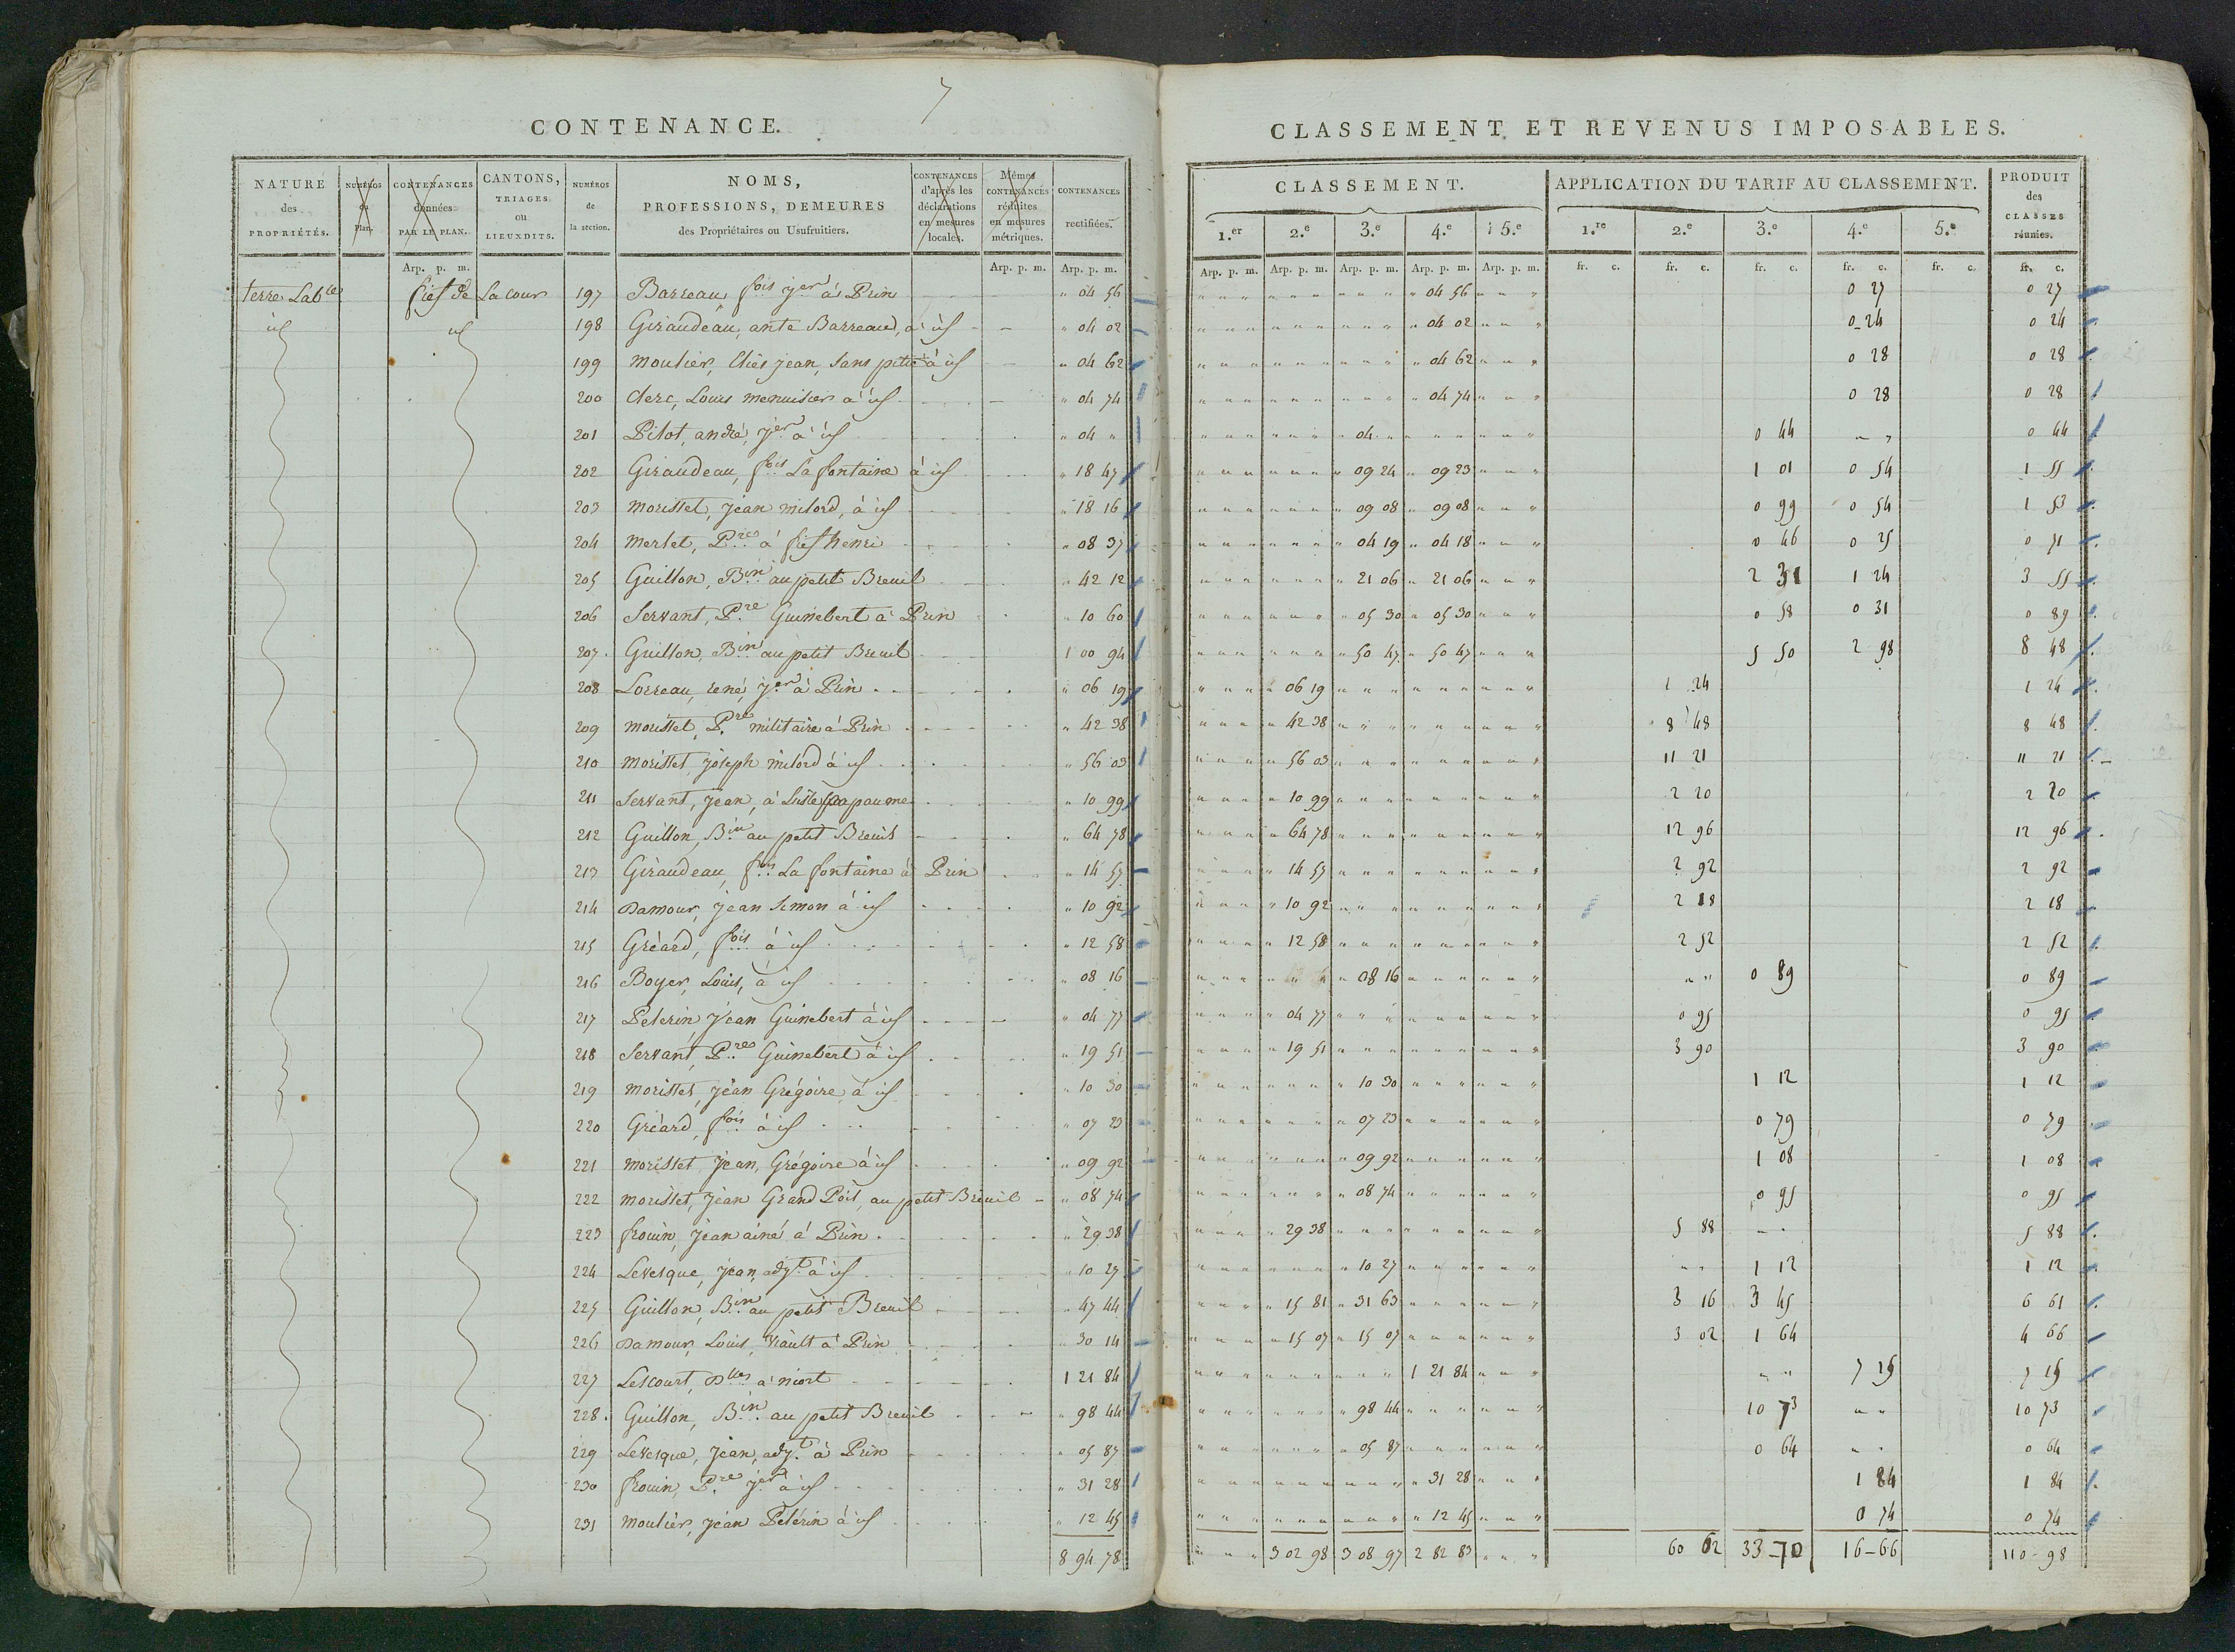 7
CONTENANCE.
NATURE des PROPRIÉTÉS. NUMÉROS du Plan. CONTENANCES données PAR LE PLAN. CANTONS, TRIAGES ou LIEUXDITS. NUMÉROS de la section. NOMS, PROFESSIONS, DEMEURES des Propriétaires ou Usufruitiers. CONTENANCES d'après les déclarations en mesures locales. Mêmes CONTENANCES réduites en mesures métriques. CONTENANCES rectifiées.
Arp. p. m. Arp. p. m. Arp. p. m.
terre Lable fief de La cour 197 Barreau fois jer à Prin " 04 56
id id 198 Giraudeau, ante Barreau, à id " 04 02
199 moulier, Jean, sans à id " 04 62
200 Clerc, Louis menuisier à id " 04 74
201 Pilot, andré, jer à id " 04 "
202 Giraudeau, fois La fontaine à id " 18 47
203 morisset, jean milord, à id " 18 16
204 merlet, Pre à fief henri " 08 37
205 Guillon, Bin au petit Breuil " 42 12
206 Servant, Pre Guinebert à Prin " 10 60
207. Guillon, Bin au petit Breuil 1 00 94
208 Lorreau, rené, jer à Prin " 06 19
209 morisset, Pre militaire à Prin " 42 38
210 morisset, joseph milord à id " 56 03
211 Servant, jean, à paume " 10 99
212 Guillon, Bin au petit Breuil " 64 78
213 Giraudeau, fois La fontaine à Prin " 14 57
214 Damour, jean Simon à id " 10 92
215 Gréard, fois à id " 12 58
216 Boyer, Louis, à id " 08 16
217 Pelerin, jean Guinebert à id " 04 77
218 Servant, Pre Guinebert à id " 19 51
219 morisset, jean Grégoire à id " 10 30
220 Gréard, fois à id " 07 23
221 morisset, jean, Grégoire à id " 09 92
222 morisset, jean Grand Pois, au petit Breuil " 08 74
223 frouin, jean ainé à Prin " 29 38
224 Levesque, jean, adjt à id " 10 27
225 Guillon, Bin au petit Breuil " 47 44
226 Damour, Louis, à Prin " 30 14
227 Lescourt, Dlles à niort 1 21 84
228. Guillon, Bin au petit Breuil " 98 44
229 Levesque, jean, adjt à Prin " 05 87
230 frouin, Pre jer à id " 31 28
231 moulier, jean Pelerin à id " 12 45
8 94 78
CLASSEMENT ET REVENUS IMPOSABLES.
CLASSEMENT. APPLICATION DU TARIF AU CLASSEMENT. PRODUIT des CLASSES réunies.
1.er 2.e 3.e 4.e 5.e 1.re 2.e 3.e 4.e 5.e
Arp. p. m. Arp. p. m. Arp. p. m. Arp. p. m. Arp. p. m. fr. c. fr. c. fr. c. fr. c. fr. c. fr. c.
" 04 56 0 27 0 27
" 04 02 0 24 0 24
" 04 62 0 28 0 28
" 04 74 0 28 0 28
" 04 " 0 44 " " 0 44
" 09 24 " 09 23 1 01 0 54 1 55
" 09 08 " 09 08 0 99 0 54 1 53
" 04 19 " 04 18 0 46 0 25 0 71
" 21 06 " 21 06 2 31 1 24 3 55
" 05 30 " 05 30 0 58 0 31 0 89
" 50 47 " 50 47 5 50 2 98 8 48
" 06 19 1 24 1 24
" 42 38 8 48 8 48
" 56 03 11 21 11 21
" 10 99 2 20 2 20
" 64 78 12 96 12 96
" 14 57 2 92 2 92
" 10 92 2 18 2 18
" 12 58 2 52 2 52
" 08 16 " " 0 89 0 89
" 04 77 0 95 0 95
" 19 51 3 90 3 90
" 10 30 1 12 1 12
" 07 23 0 79 0 79
" 09 92 1 08 1 08
" 08 74 0 95 0 95
" 29 38 5 88 " " 5 88
" 10 27 " " 1 12 1 12
" 15 81 " 31 63 3 16 3 45 6 61
" 15 07 " 15 07 3 02 1 64 4 66
1 21 84 " " 7 19 7 19
" 98 44 10 73 " " 10 73
" 05 87 0 64 " " 0 64
" 31 28 1 84 1 84
" 12 45 0 74 0 74
" " " 3 02 98 3 08 97 2 82 83 " " " 60 62 33-70 16-66 110-98